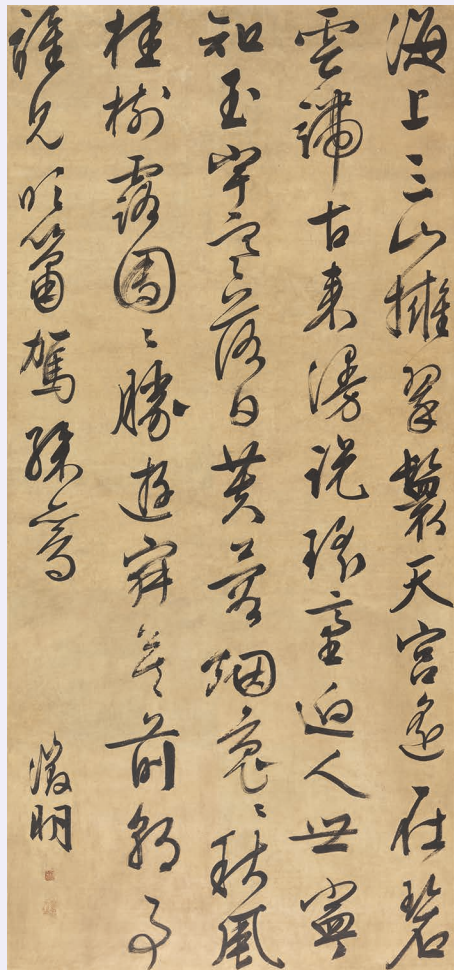 海上三山擁翠鬟天宮遙在碧
雲端古來漫說瑤臺逈人世寧
知玉宇寒落日芙蓉烟裊〻秋風
桂樹露團〻勝遊寂寞前朝事
誰見吹簫駕綵鸞
徵明